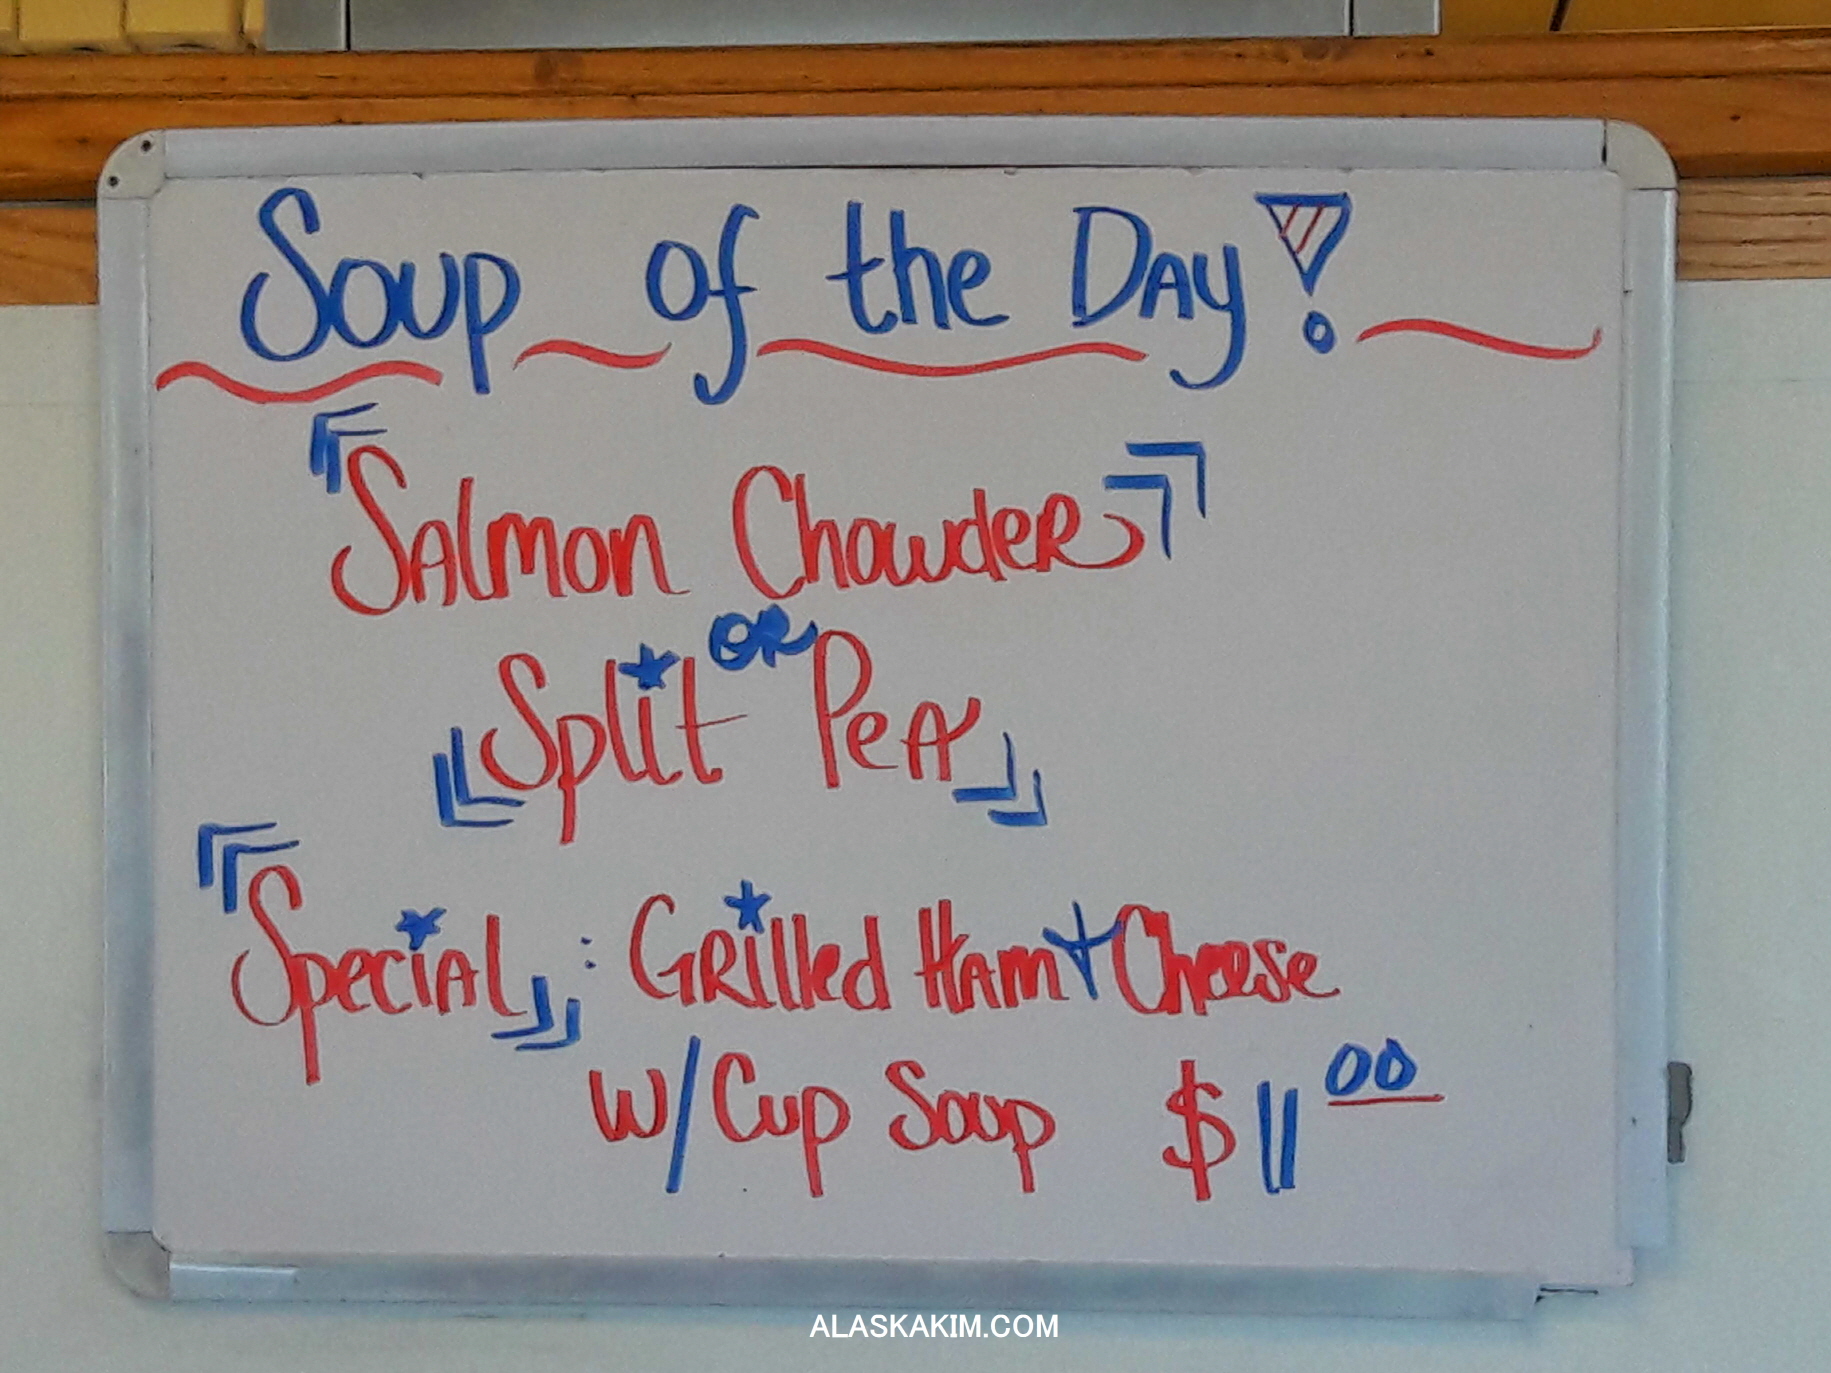 Soup of the Day!
Salmon Chowder
OR
Split Pea
Special : Grilled Ham + Cheese
w/Cup Soup $11 00
ALASKAKIM.COM